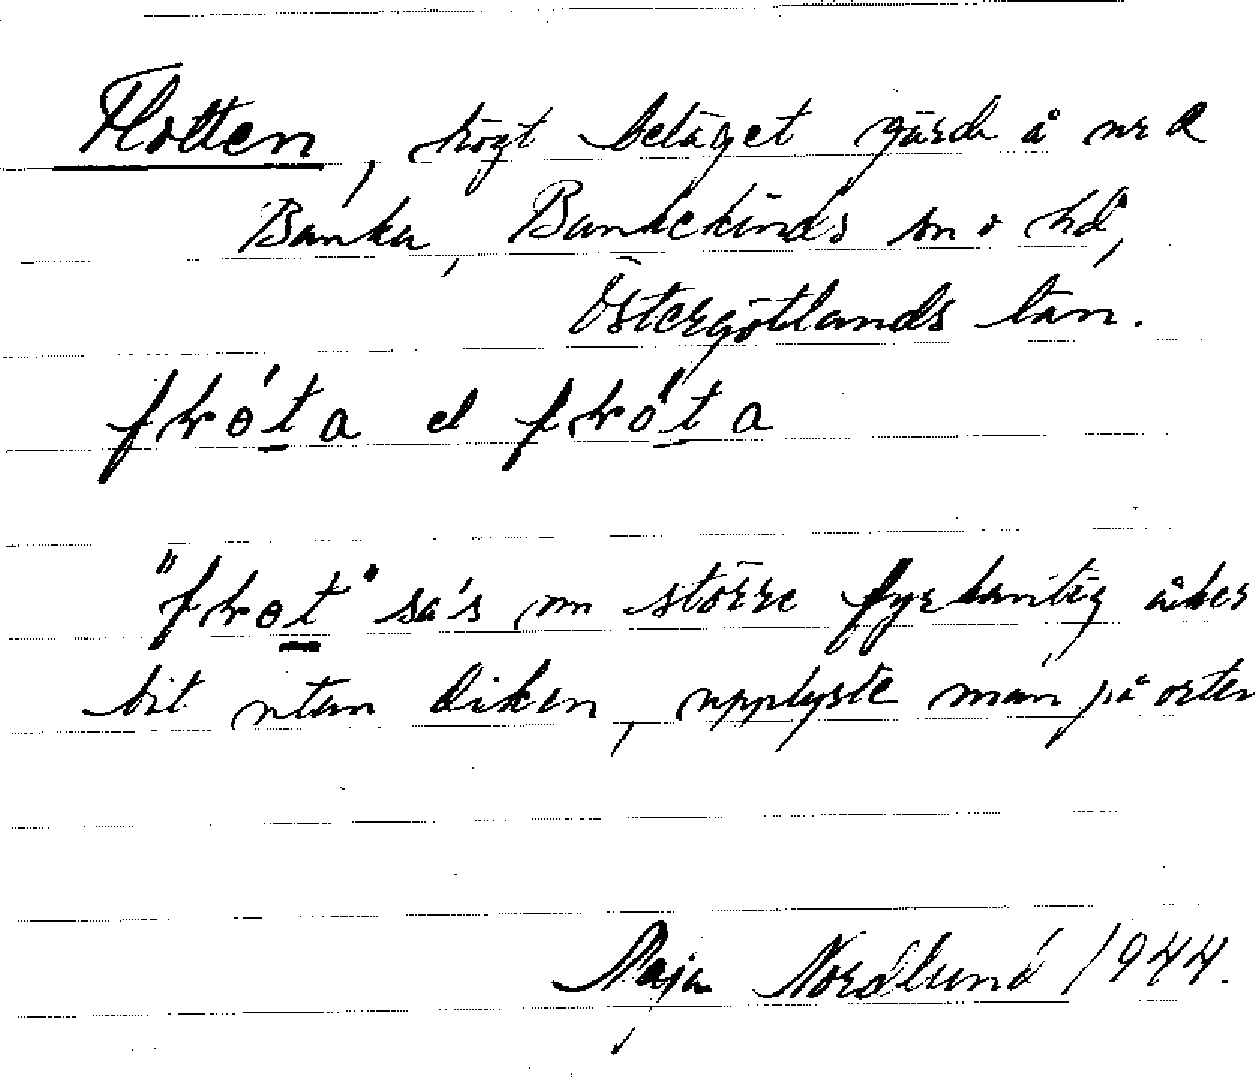 Flotten, högt beläget gärde å nr 2
Banka, Bankekinds sn o hd,
Östergötlands län.
flóta el flóta
"flot" sa's om större fyrkantig åker
bit utan diken, upplyste man på orten
Maja Nordlund 1944.